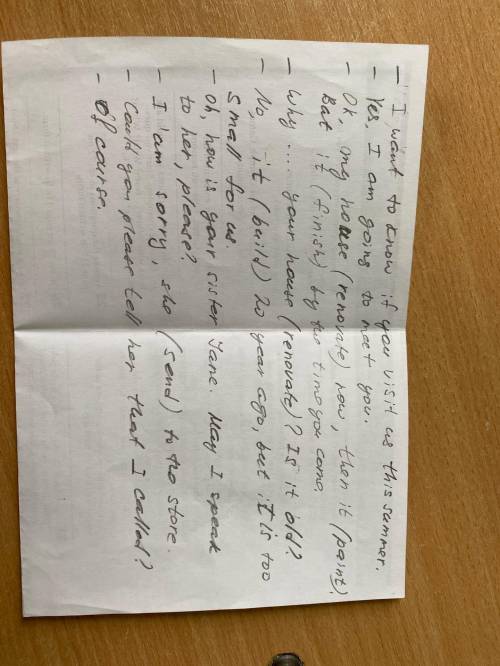 — I want to know if you visit us this summer.
— Yes, I am going to meet you.
— Ok, my house (renovate) now, then it (paint).
But it (finish) by the time you come.
— Why .... your house (renovate)? Is it old?
— No, it (build) 20 year ago, but it is too
small for us.
— Oh, how is your sister Jane. May I speak
to her, please?
— I am sorry, she (send) to the store.
— Could you please tell her that I called?
— Of course.